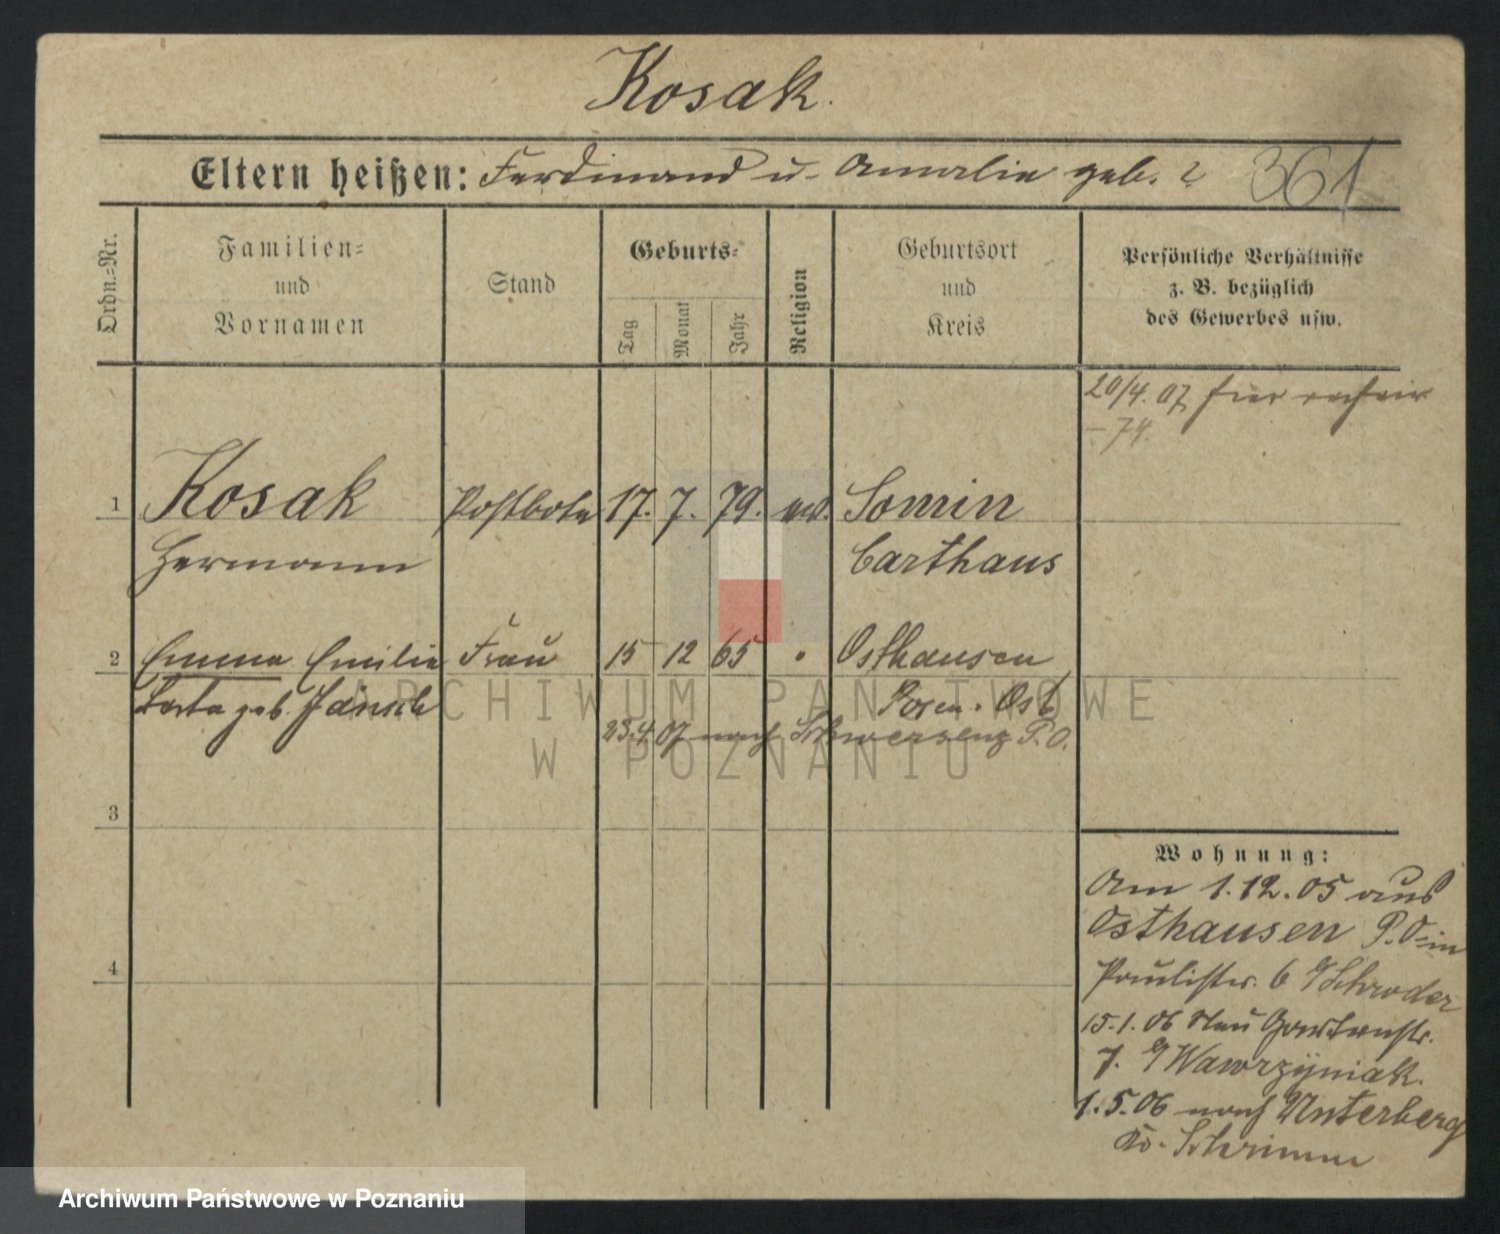 Kosak.
Eltern heißen: Ferdinand u. Amalie geb. ? 361
Ordn.=Nr.
Familien=
und
Vornamen
Stand
Geburts=
Tag
Monat
Jahr
Religion
Geburtsort
und
Kreis
Persönliche Verhältnisse
z. B. bezüglich
des Gewerbes usw.
20/4. 07 hier
- 74.
1 Kosak Postbote 17. 7. 79. ev. Somin
Hermann Carthaus
2 Emma Emilie Frau 15 12 65 " Osthausen
geb. Jänsch Posen. Ost
23.4.07 nach Schwersenz P.O.
3
4
Wohnung:
Am 1.12.05 aus
Osthausen P.O. in
Paulistr. 6 b/Schroder
15.1.06 Neu Gartenstr.
7. b/Wawrzyniak.
1.5.06 nach Unterberg
Kr. Schrimm
ARCHIWUM PAŃSTWOWE
W POZNANIU
Archiwum Państwowe w Poznaniu